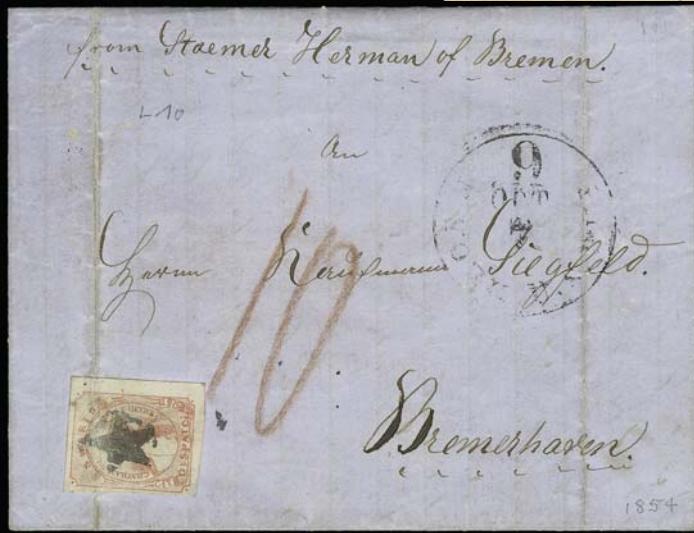 from Staemer Herman of Bremen.
L 10
An
9
OCT
Herrn Kaufmann Siegfeld.
10
DISPATCH
Bremerhaven.
1854